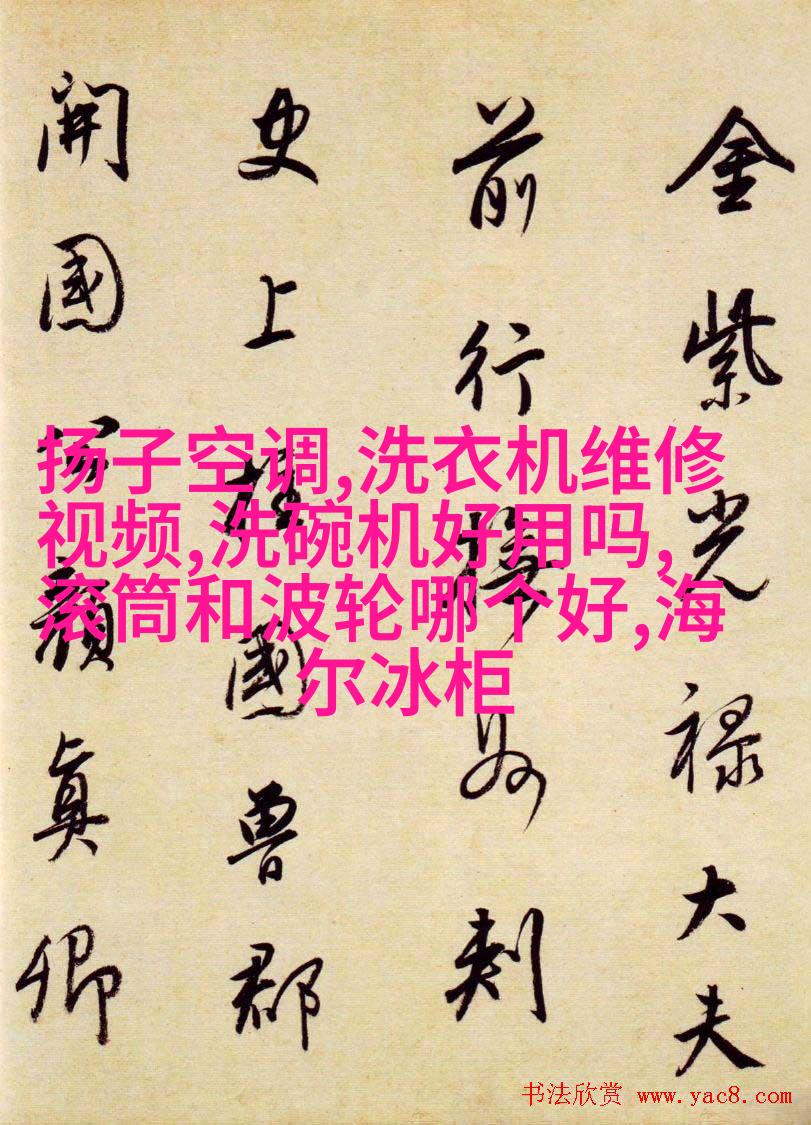 金紫光禄大夫
前行州刺
史上柱國魯郡
開國顏真卿
扬子空调,洗衣机维修
视频,洗碗机好用吗,
滚筒和波轮哪个好,海
尔冰柜
书法欣赏 www.yac8.com